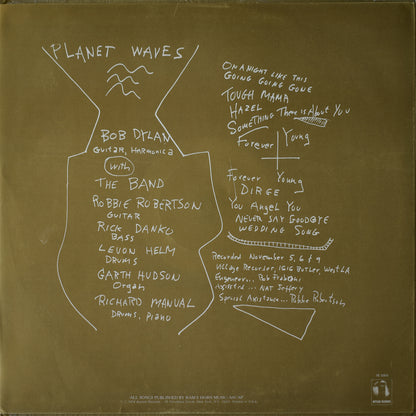 PLANET WAVES
BOB DYLAN
GUITAR, HARMONICA
with
THE BAND
ROBBIE ROBERTSON
GUITAR
RICK DANKO
BASS
LEVON HELM
DRUMS
GARTH HUDSON
Organ
RICHARD MANUAL
DRUMS, PIANO
ON A NIGHT LIKE THIS
GOING GOING GONE
TOUGH MAMA
HAZEL
SOMETHING There is About You
Forever Young
Forever Young
DIRGE
You Angel You
NEVER SAY GOODBYE
WEDDING SONG
Recorded November 5, 6, & 9
Village Recorder, 1616 Butler, West LA
Engineer... Rob Fraboni
Assisted... NAT Jeffery
Special Assistance... Robbie Robertson
ALL SONGS PUBLISHED BY RAM'S HORN MUSIC - ASCAP